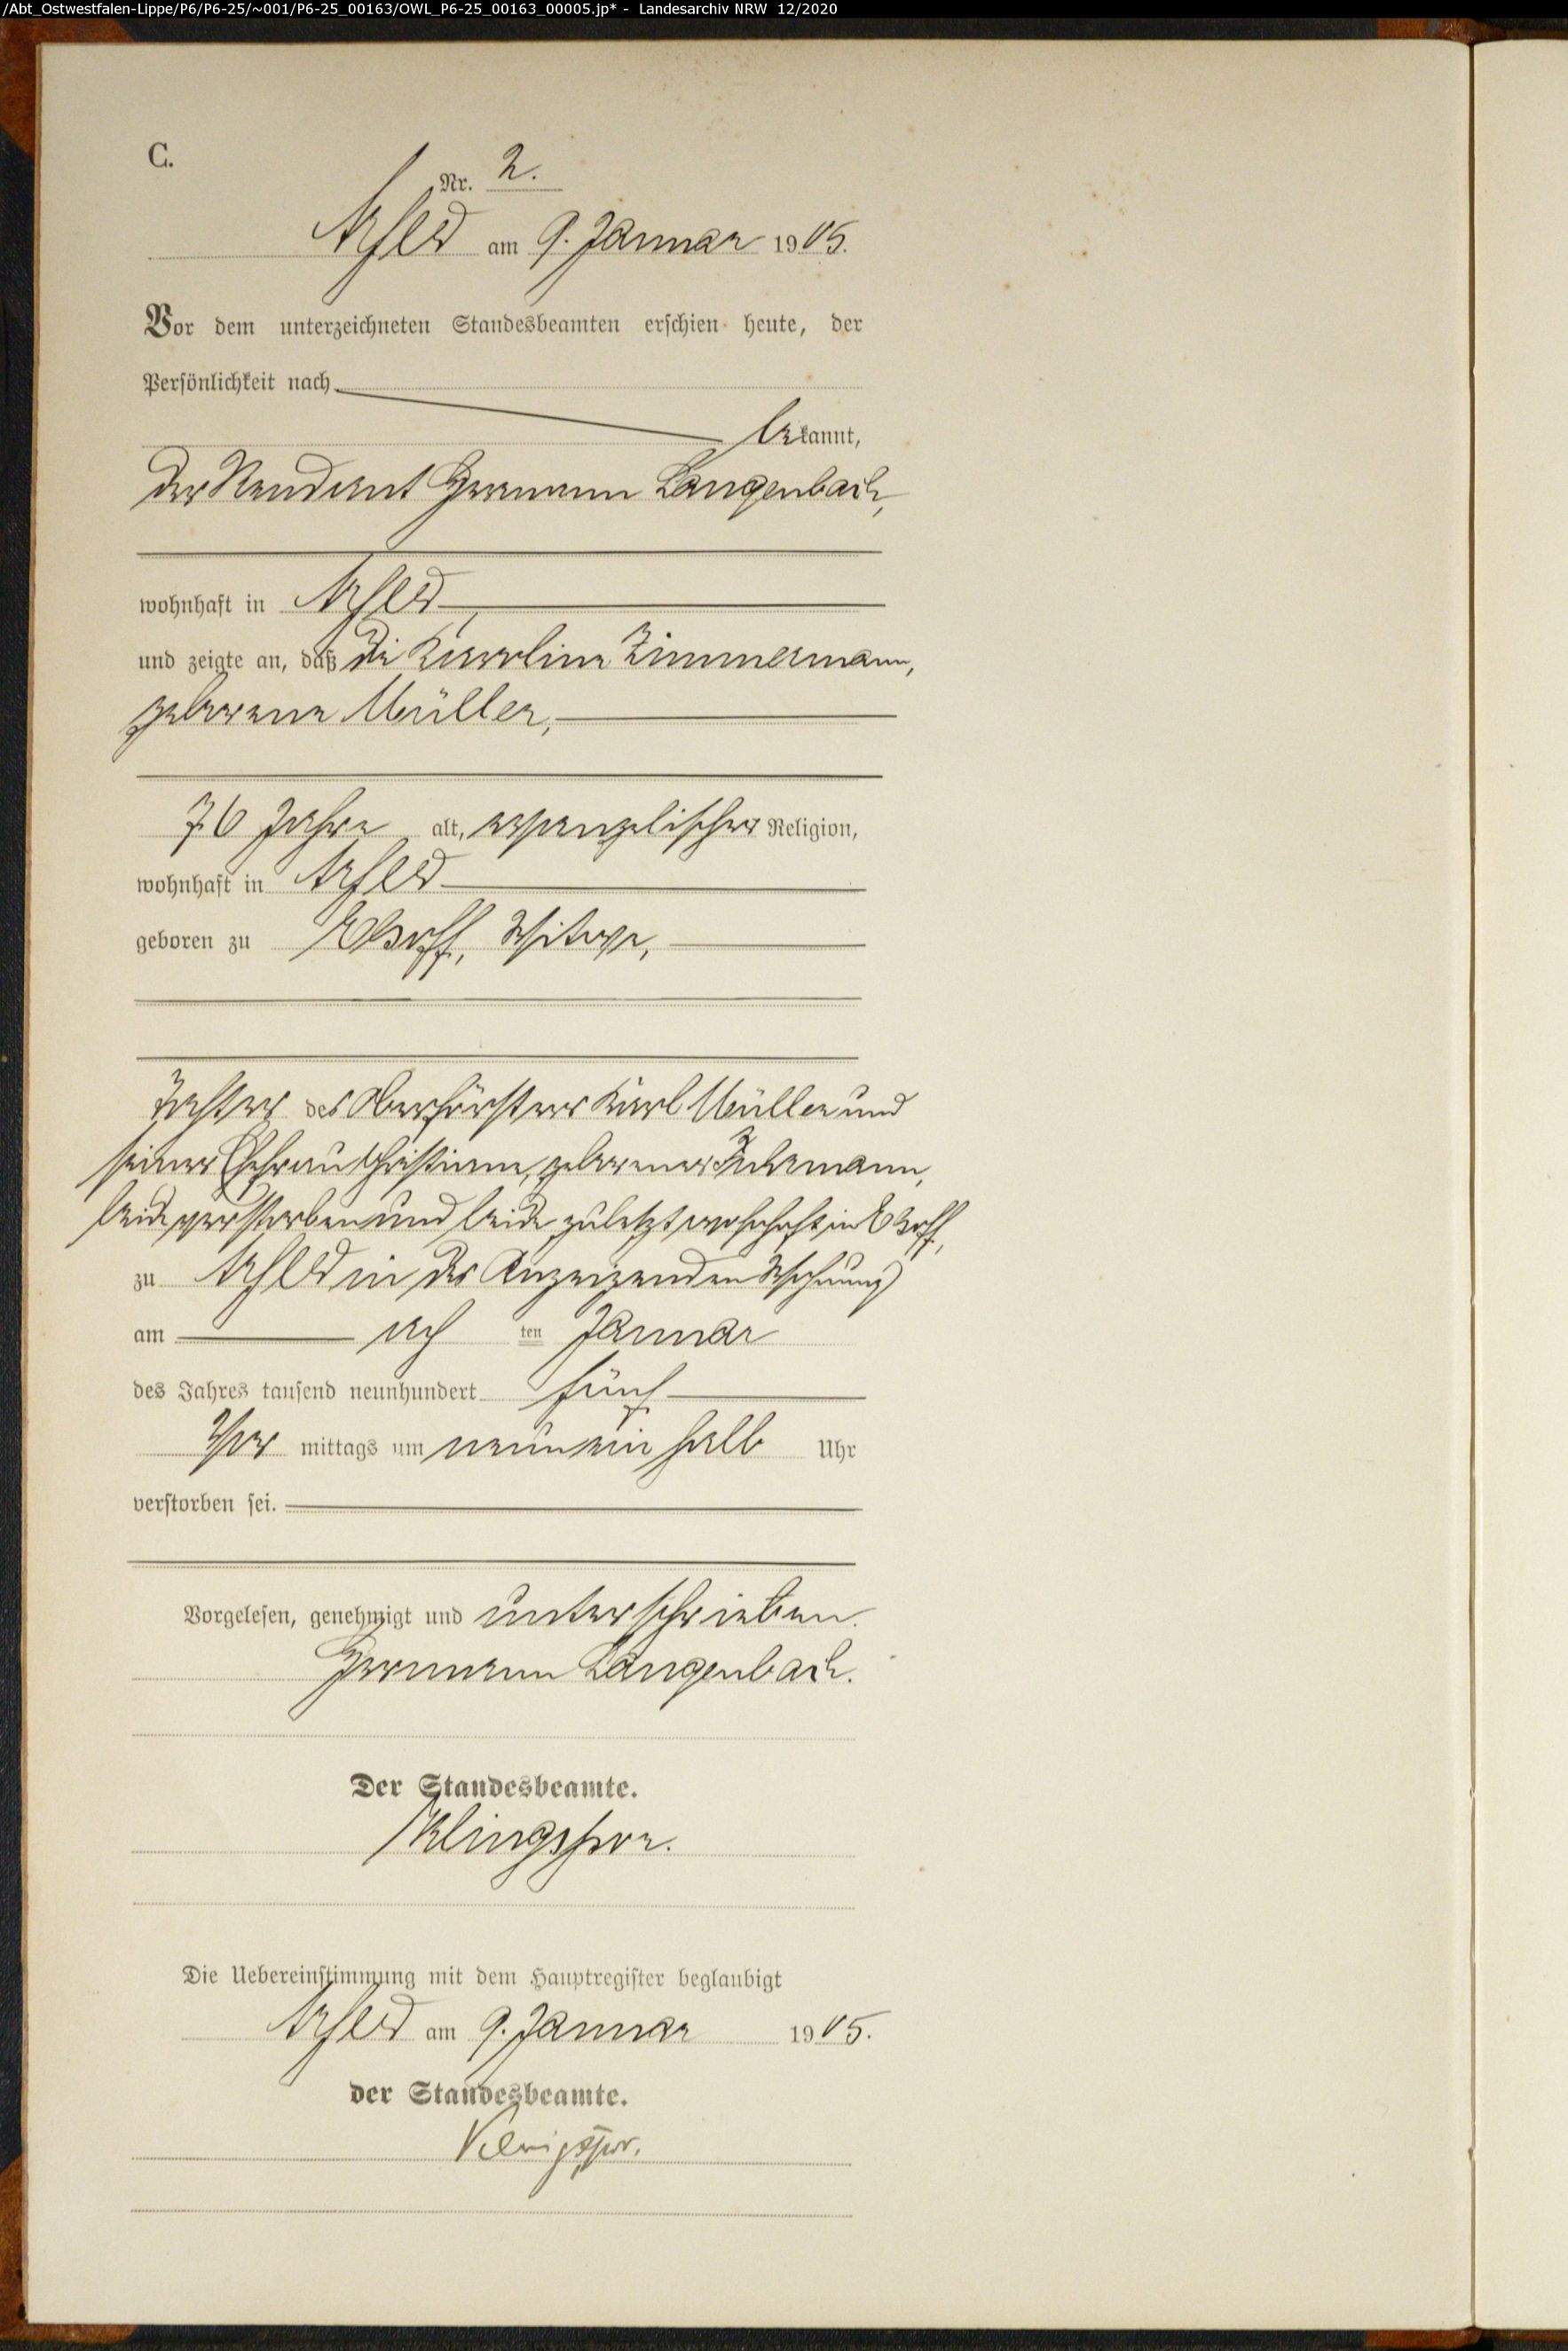 /Abt_Ostwestfalen-Lippe/P6/P6-25/~001/P6-25_00163/OWL_P6-25_00163_00005.jp* - Landesarchiv NRW 12/2020
C.
Nr. 2.
Arfeld am 9. Januar 1905.
Vor dem unterzeichneten Standesbeamten erschien heute, der
Persönlichkeit nach
bekannt,
der Rendant Hermann Langenbach,
wohnhaft in Arfeld
und zeigte an, daß die Karoline Zimmermann,
geborene Müller,
76 Jahre alt, evangelischer Religion,
wohnhaft in Arfeld
geboren zu Elsoff, Witwe,
Tochter des Oberförsters Karl Müller und
seiner Ehefrau Christiane, geborener
beide verstorben und beide zuletzt wohnhaft in Elsoff,
zu Arfeld in des Anzeigenden Wohnung
am ach ten Januar
des Jahres tausend neunhundert fünf
Vor mittags um neun ein halb Uhr
verstorben sei.
Vorgelesen, genehmigt und unterschrieben.
Hermann Langenbach.
Der Standesbeamte.
Klingspor.
Die Uebereinstimmung mit dem Hauptregister beglaubigt
Arfeld am 9. Januar 1905.
der Standesbeamte.
Klingspor.